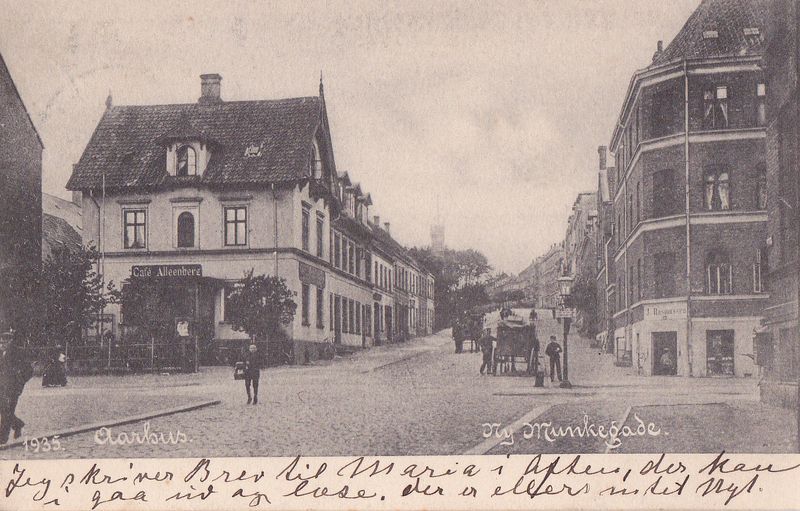 Café Alleenberg
J. Rasmussen
1935. Aarhus. Ny Munkegade.
Jeg skriver Brev til Maria i Aften, der kan
i gaa ud og læse. der er ellers intet Nyt.